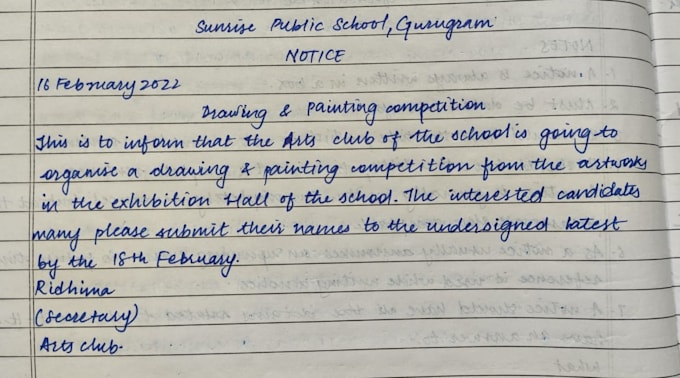 Sunrise Public School, Gurugram
NOTICE
16 February 2022
Drawing & Painting competition
This is to inform that the Arts club of the school is going to
organise a drawing & painting competition from the artworks
in the exhibition Hall of the school. The interested candidates
many please submit their names to the undersigned latest
by the 18th February.
Ridhima
(Secretary)
Arts club.